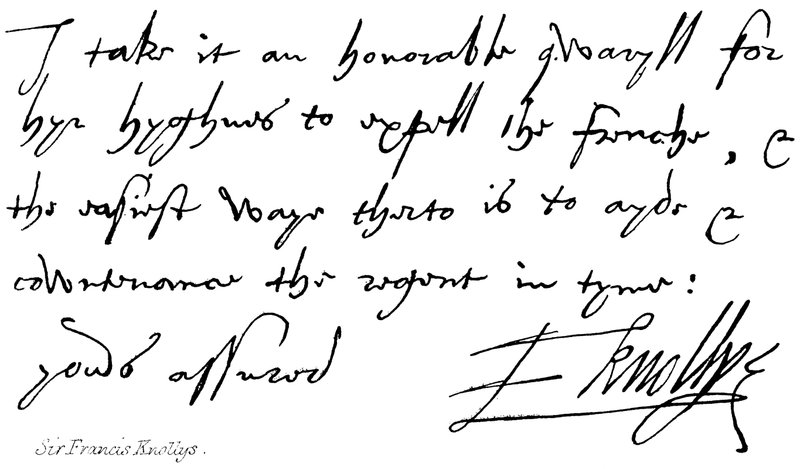 I take it an honorable qwaryll for
hyr hyghnes to expell the frenche, &
the easiest waye therto is to ayde &
cowntenance the regent in tyme:
yours assured F knollys
Sir Francis Knollys.